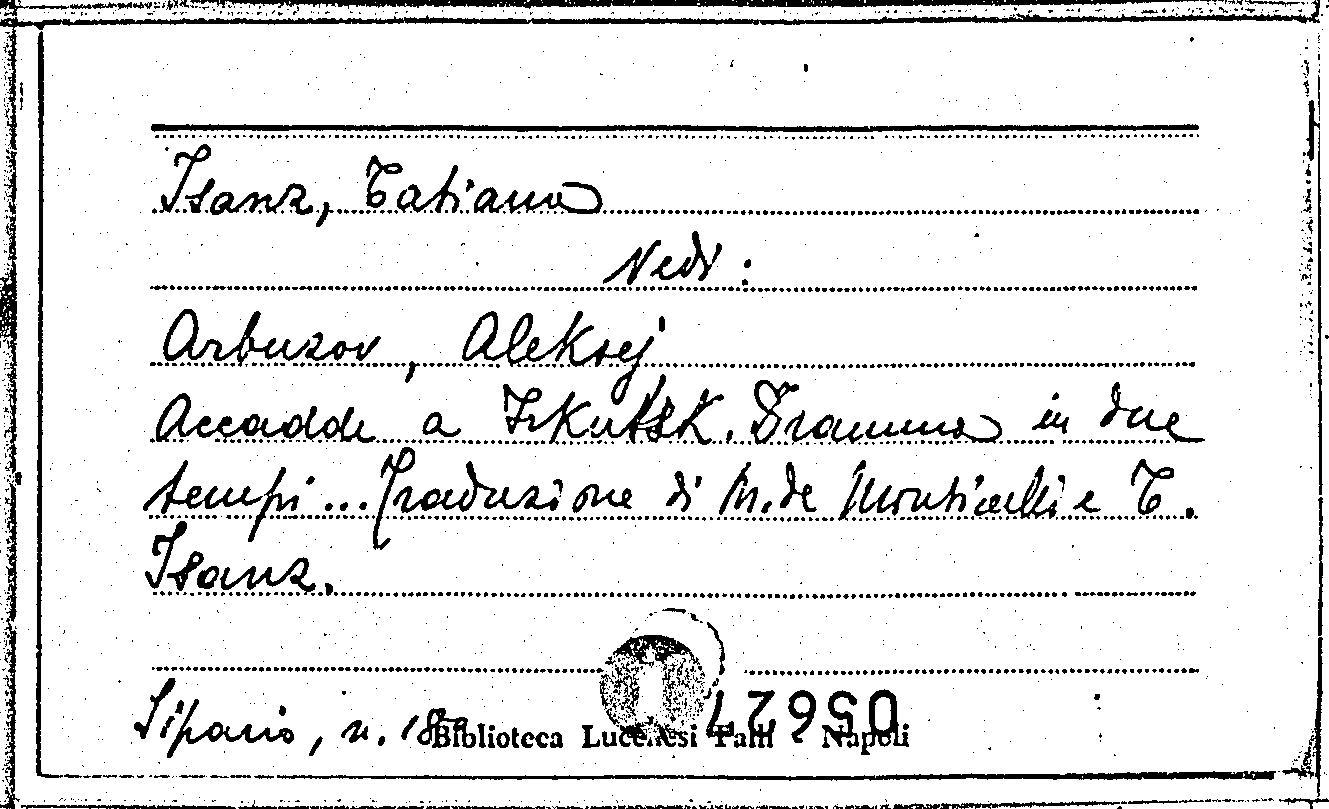 Isanz, Tatiana
Vedi :
Arbuzov, Aleksej
Accadde a Irkutsk. Dramma in due
tempi... Traduzione di M. de Monticelli e T.
Isanz.
Sipario, n.
Biblioteca Lucchesi Palli - Napoli